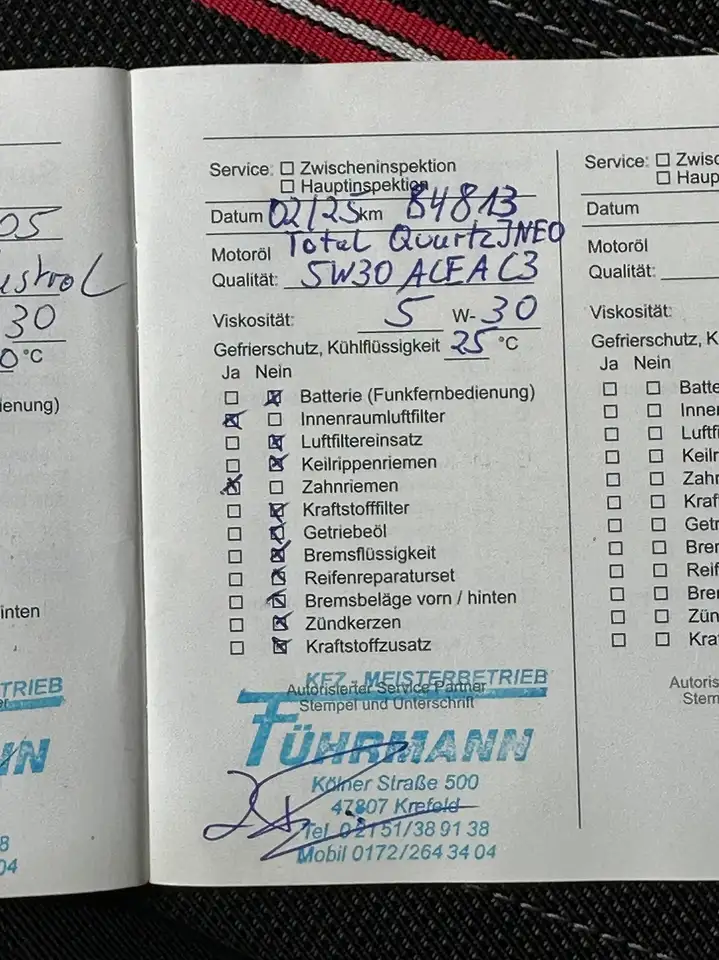 05
30
0 °C
ienung)
inten
TRIEB
8
04
Service: Zwischeninspektion
Hauptinspektion
Datum 02/25 km 84813
Motoröl Total Quartz INEO
Qualität: 5W30 ACEA C3
Viskosität: 5 W- 30
Gefrierschutz, Kühlflüssigkeit 25 °C
Ja Nein
Batterie (Funkfernbedienung)
Innenraumluftfilter
Luftfiltereinsatz
Keilrippenriemen
Zahnriemen
Kraftstofffilter
Getriebeöl
Bremsflüssigkeit
Reifenreparaturset
Bremsbeläge vorn / hinten
Zündkerzen
Kraftstoffzusatz
KFZ - MEISTERBETRIEB
Autorisierter Service Partner
Stempel und Unterschrift
FÜHRMANN
Kölner Straße 500
47807 Krefeld
Tel 02151/38 91 38
Mobil 0172/264 34 04
Service: Zwisc
Haup
Datum
Motoröl
Qualität:
Viskosität:
Gefrierschutz, K
Ja Nein
Batte
Inner
Luftfi
Keilr
Zahr
Kraf
Getr
Bre
Reif
Bre
Zün
Kra
Autoris
Stem